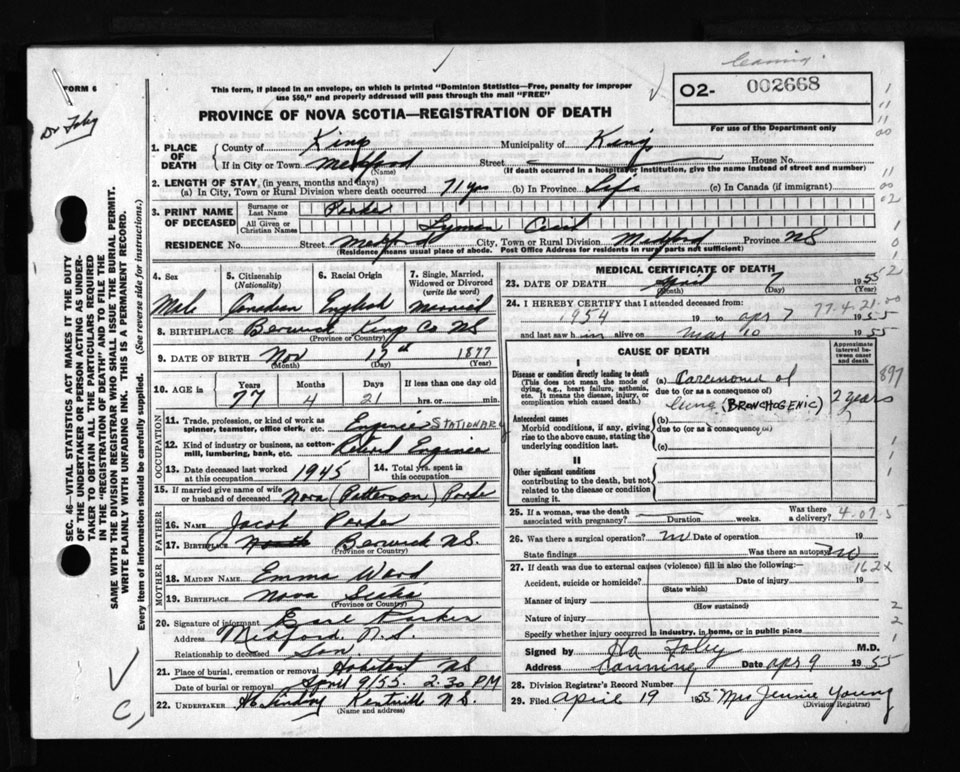 Canning
FORM 6
This form, if placed in an envelope, on which is printed "Dominion Statistics—Free, penalty for improper
use $50," and properly addressed will pass through the mail "FREE"
O2- 002668
PROVINCE OF NOVA SCOTIA—REGISTRATION OF DEATH
For use of the Department only
Dr Foley
1. PLACE OF DEATH
County of Kings Municipality of Kings
If in City or Town Medford (Name) Street House No.
(If death occurred in a hospital or institution, give the name instead of street and number)
2. LENGTH OF STAY, (in years, months and days)
(a) In City, Town or Rural Division where death occurred 71 yrs (b) In Province Life (c) In Canada (if immigrant)
3. PRINT NAME OF DECEASED
Surname or Last Name Parker
All Given or Christian Names Lyman Cecil
RESIDENCE No. Street Medford City, Town or Rural Division Medford Province NS
(Residence means usual place of abode. Post Office Address for residents in rural parts not sufficient)
4. Sex Male
5. Citizenship (Nationality) Canadian
6. Racial Origin English
7. Single, Married, Widowed or Divorced (write the word) Married
8. BIRTHPLACE Berwick Kings Co NS
(Province or Country)
9. DATE OF BIRTH Nov 17th 1877
(Month) (Day) (Year)
10. AGE is Years 77 Months 4 Days 21 If less than one day old hrs. or min.
OCCUPATION
11. Trade, profession, or kind of work as spinner, teamster, office clerk, etc. Engineer STATIONARY
12. Kind of industry or business, as cotton-mill, lumbering, bank, etc. Retired Engineer
13. Date deceased last worked at this occupation 1945
14. Total yrs. spent in this occupation
15. If married give name of wife or husband of deceased Nora (Patterson) Parker
FATHER
16. NAME Jacob Parker
17. BIRTHPLACE Berwick N.S.
(Province or Country)
MOTHER
18. MAIDEN NAME Emma Ward
19. BIRTHPLACE Nova Scotia
(Province or Country)
20. Signature of informant Earl Parker
Address Medford, N.S.
Relationship to deceased Son
21. Place of burial, cremation or removal NS
Date of burial or removal April 9/55. 2:30 PM
22. UNDERTAKER Kentville N.S.
(Name and Address)
MEDICAL CERTIFICATE OF DEATH
23. DATE OF DEATH April 7 1955
(Month) (Day) (Year)
24. I HEREBY CERTIFY that I attended deceased from:
1954 19 to apr 7 1955
77.4.21.00
and last saw him alive on mar 10 1955
CAUSE OF DEATH
Approximate interval between onset and death
I
Disease or condition directly leading to death
(This does not mean the mode of dying, e.g., heart failure, asthenia, etc. It means the disease, injury, or complication which caused death.)
(a) Carcinoma of
due to (or as a consequence of)
lung (BRONCHOGENIC) 2 years
Antecedent causes
Morbid conditions, if any, giving rise to the above cause, stating the underlying condition last.
(b)
due to (or as a consequence of)
(c)
II
Other significant conditions
contributing to the death, but not related to the disease or condition causing it.
25. If a woman, was the death associated with pregnancy? Duration weeks. Was there a delivery?
26. Was there a surgical operation? no Date of operation 19
State findings Was there an autopsy? no
27. If death was due to external causes (violence) fill in also the following:—
162x
Accident, suicide or homicide? Date of injury 19
(State which)
Manner of injury
(How sustained)
Nature of injury
Specify whether injury occurred in industry, in home, or in public place
Signed by Foley M.D.
Address Canning Date apr 9 1955
28. Division Registrar's Record Number
29. Filed April 19 1955 Mrs Jennie Young
(Division Registrar)
SEC. 46—VITAL STATISTICS ACT MAKES IT THE DUTY
OF THE UNDERTAKER OR PERSON ACTING AS UNDER-
TAKER TO OBTAIN ALL THE PARTICULARS REQUIRED
IN THE "REGISTRATION OF DEATH" AND TO FILE THE
SAME WITH THE DIVISION REGISTRAR WHO SHALL ISSUE THE BURIAL PERMIT.
WRITE PLAINLY WITH UNFADING INK. THIS IS A PERMANENT RECORD.
Every item of information should be carefully supplied. (See reverse side for instructions.)